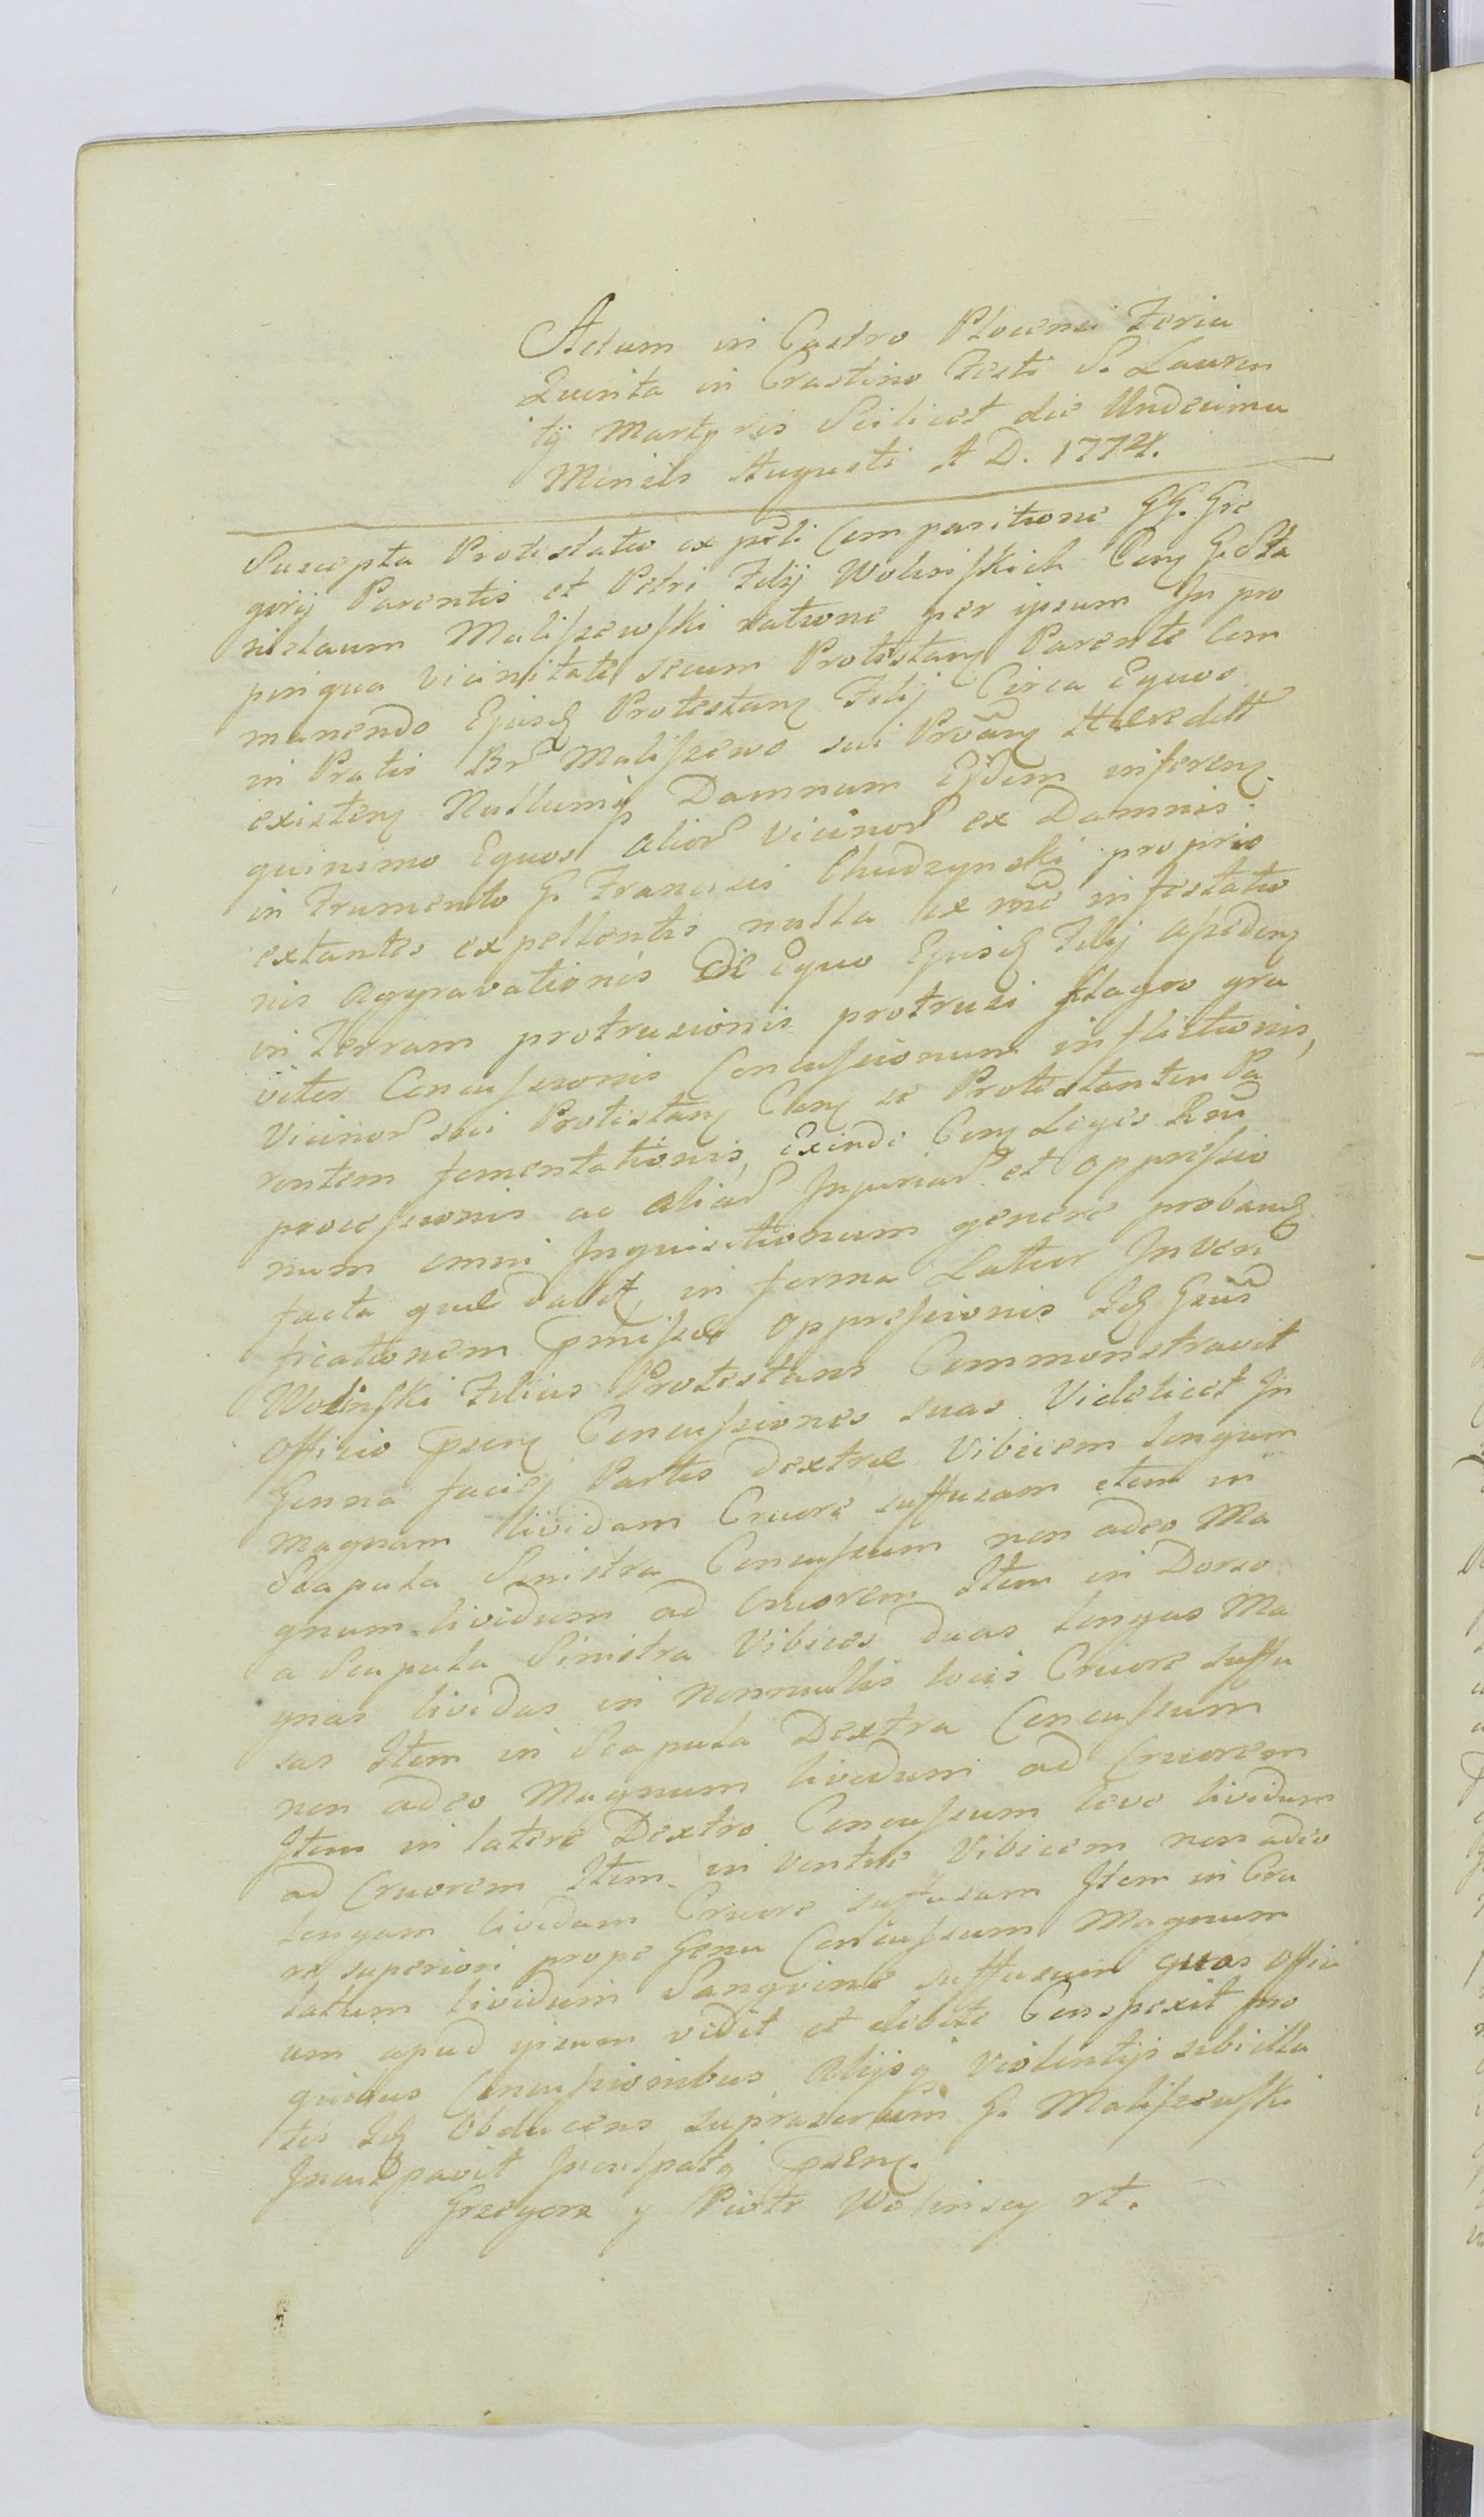 Actum in Castro Plocensi Feria
Quinta in Crastino Festi S. Lauren
tij Martyris Scilicet die Undecima
Mensis Augusti A D. 1774.
Suscepta Protestatio ex pñli Comparitione GG. Gre
gorij Parentis et Petri Filij Wolinskich Con̄ G. Sta
nislaum Maliszewski ratione per ipsum In pro
pinqua vicinitate secum Protestan̄ Parente Com
manendo Ejusq̃ Protestan̄ Filij Circa Equos
in Pratis Br̃ Maliszewo sui Prõan̄ Haeredtt
existen̄ Nullumq̃ Damnum Ejdem inferen̄.
quinimo Equos alior̃ vicinor̃ ex Damnis
in Frumento G. Francisci Chudzynski proprio
extantes expellentis nulla ex rñe infestatio
nis aggravationis De Equo Ejusq̃ Filij assiden̄
in Terram protrusionis protrusi flagro gra
viter Concussionis Concussionum inflictionis,
Vicinor̃ sui Protestan̄ Con̄ se Protestantem Pa
rentem fomentationis, Exinde Con̄ Leges Rñi
processionis ac aliar̃ Injuriar̃ et oppressio
num omni Inquisitionum genere proban̄
facta quae dabit, in forma Latior In veri
ficationem p̃missae oppressionis Idq̃ Gñs
Wolinski Filius Protestans Commonstravit
Officio p̃sen̄ Concussiones suas Videlicet In
Genna faciej Partis dextrae Vibicem longam
magnam lividam Cruore suffusam item in
Scapula Sinistra Concussum non adeo Ma
gnum lividum ad Cruorem Item in Dorso
a Scapula Sinistra Vibices duas longas Ma
gnas lividas in nonnullis locis Cruore suffu
sas Item in Scapula Dextra Concussum
non adeo Magnum lividum ad Cruorem
Item in latere Dextro Concussum leve lividum
ad Cruorem Item in ventre Vibicem non adeo
longam lividam Cruore suffusam Item in Cru
re superiori prope Genu Concussum Magnum
latum lividum Sanguine suffusum quas offici
um apud ipsum vidit et debite Conspexit pro
quibus Concussionibus alijsq̃ violentijs sibi illa
tis Idq̃ Obducens suprascriptum G. Maliszewski
Inculpavit Inculpatq̃ p̃sen̄.
Grzegorz y Piotr Wolinscy rt.